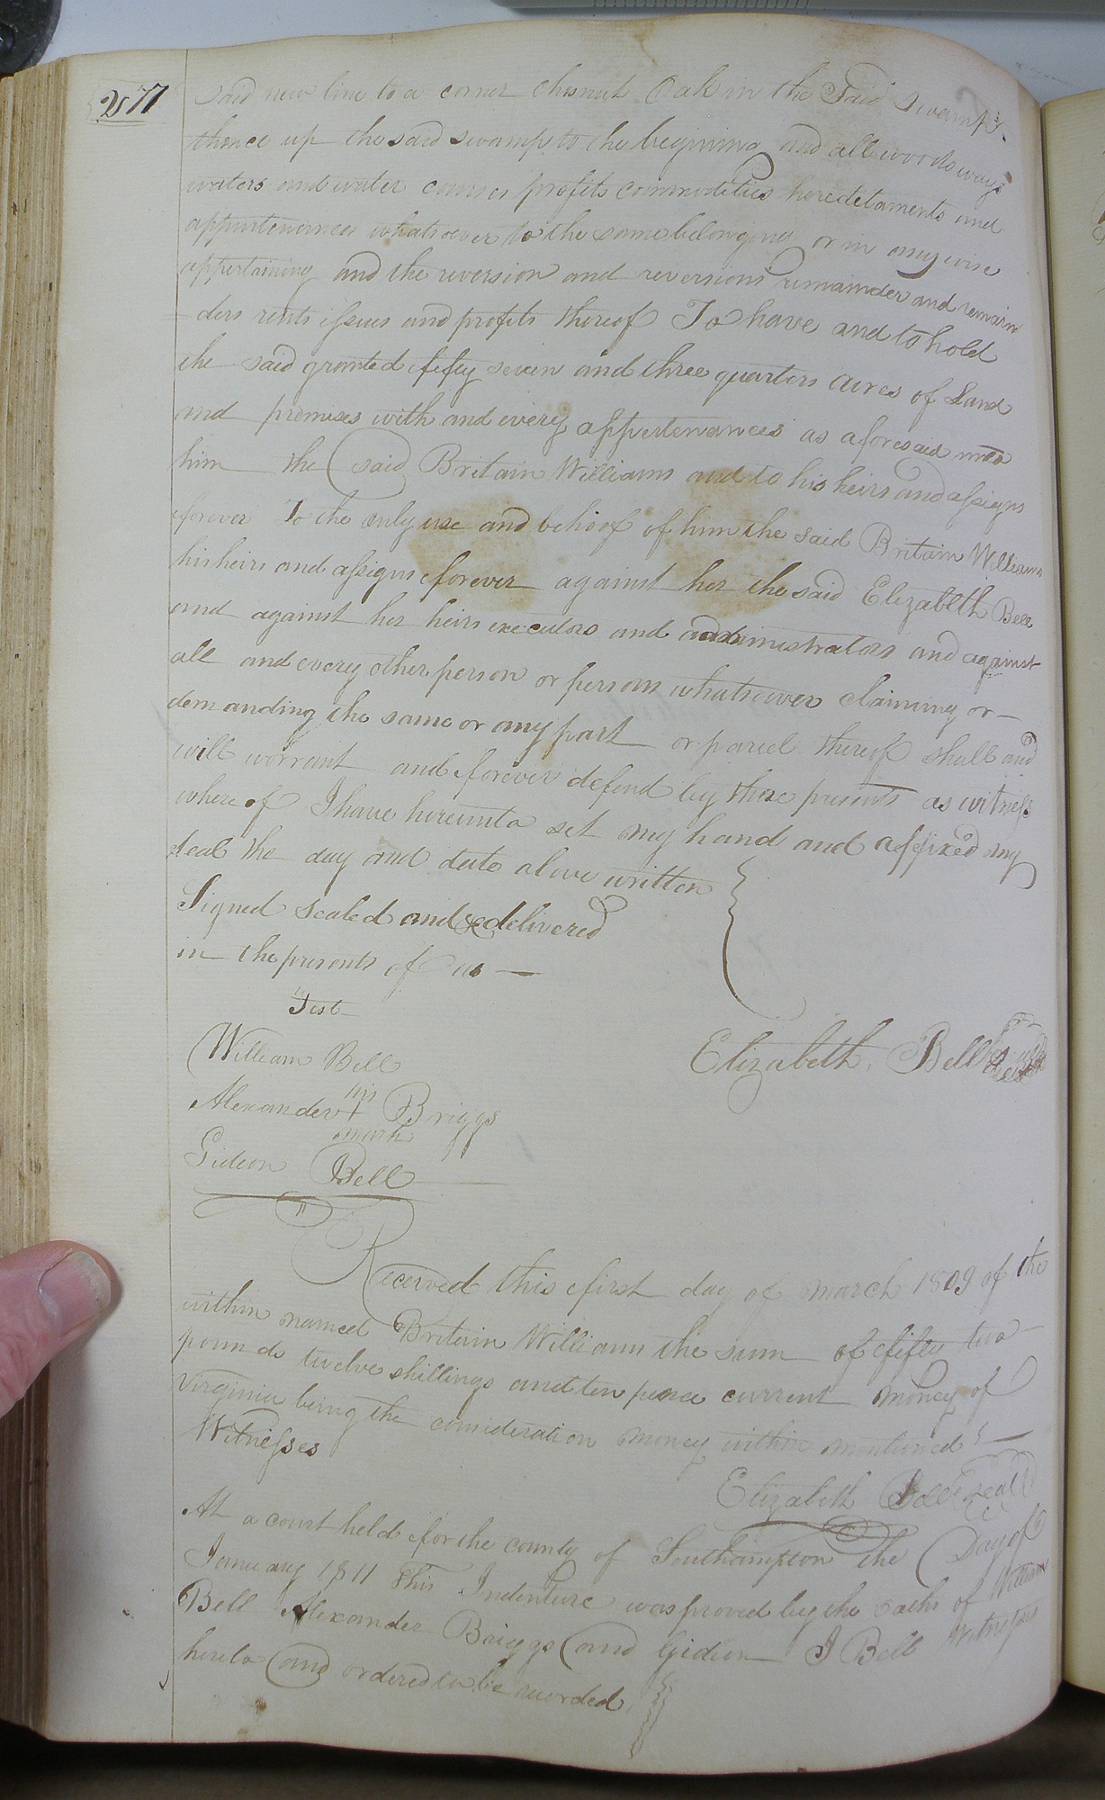 277
Said new line to a corner chesnut Oak in the Said Swamp
thence up the said swamp to the begining and all woods ways
waters and water courses profits commodities hereditaments and
appurtenances whatsoever to the same belonging or in any wise
appertaining and the reversion and reversions remainder and remain
ders rents issues and profits thereof To have and to hold
the said granted fifty seven and three quarters acres of Land
and premises with and every appertenances as aforesaid unto
him the said Britain Williams and to his heirs and assigns
forever To the only use and behoof of him the said Britain Williams
his heirs and assigns forever against her the said Elizabeth Bell
and against her heirs executors and administrators and against
all and every other person or persons whatsoever claiming or
demanding the same or any part or parcel thereof shall and
will warrant and forever defend by these presents as witness
whereof I have hereunto set my hand and affixed my
seal the day and date above written
Signed Sealed and delivered
in the presents of us —
Test
William Bell
Elizabeth Bell
his
Alexander + Briggs
mark
Gideon Bell
Received this first day of march 1809 of the
within named Britain Williams the sum of fifty two
pounds twelve shillings and ten pence current money of
Virginia being the consideration money within mentioned
Witnesses
Elizabeth Bell Seal
At a court held for the county of Southampton the Day of
January 1811 This Indenture was proved by the oaths of William
Bell Alexander Briggs and Gideon J Bell Witnesses
hereto and ordered to be recorded